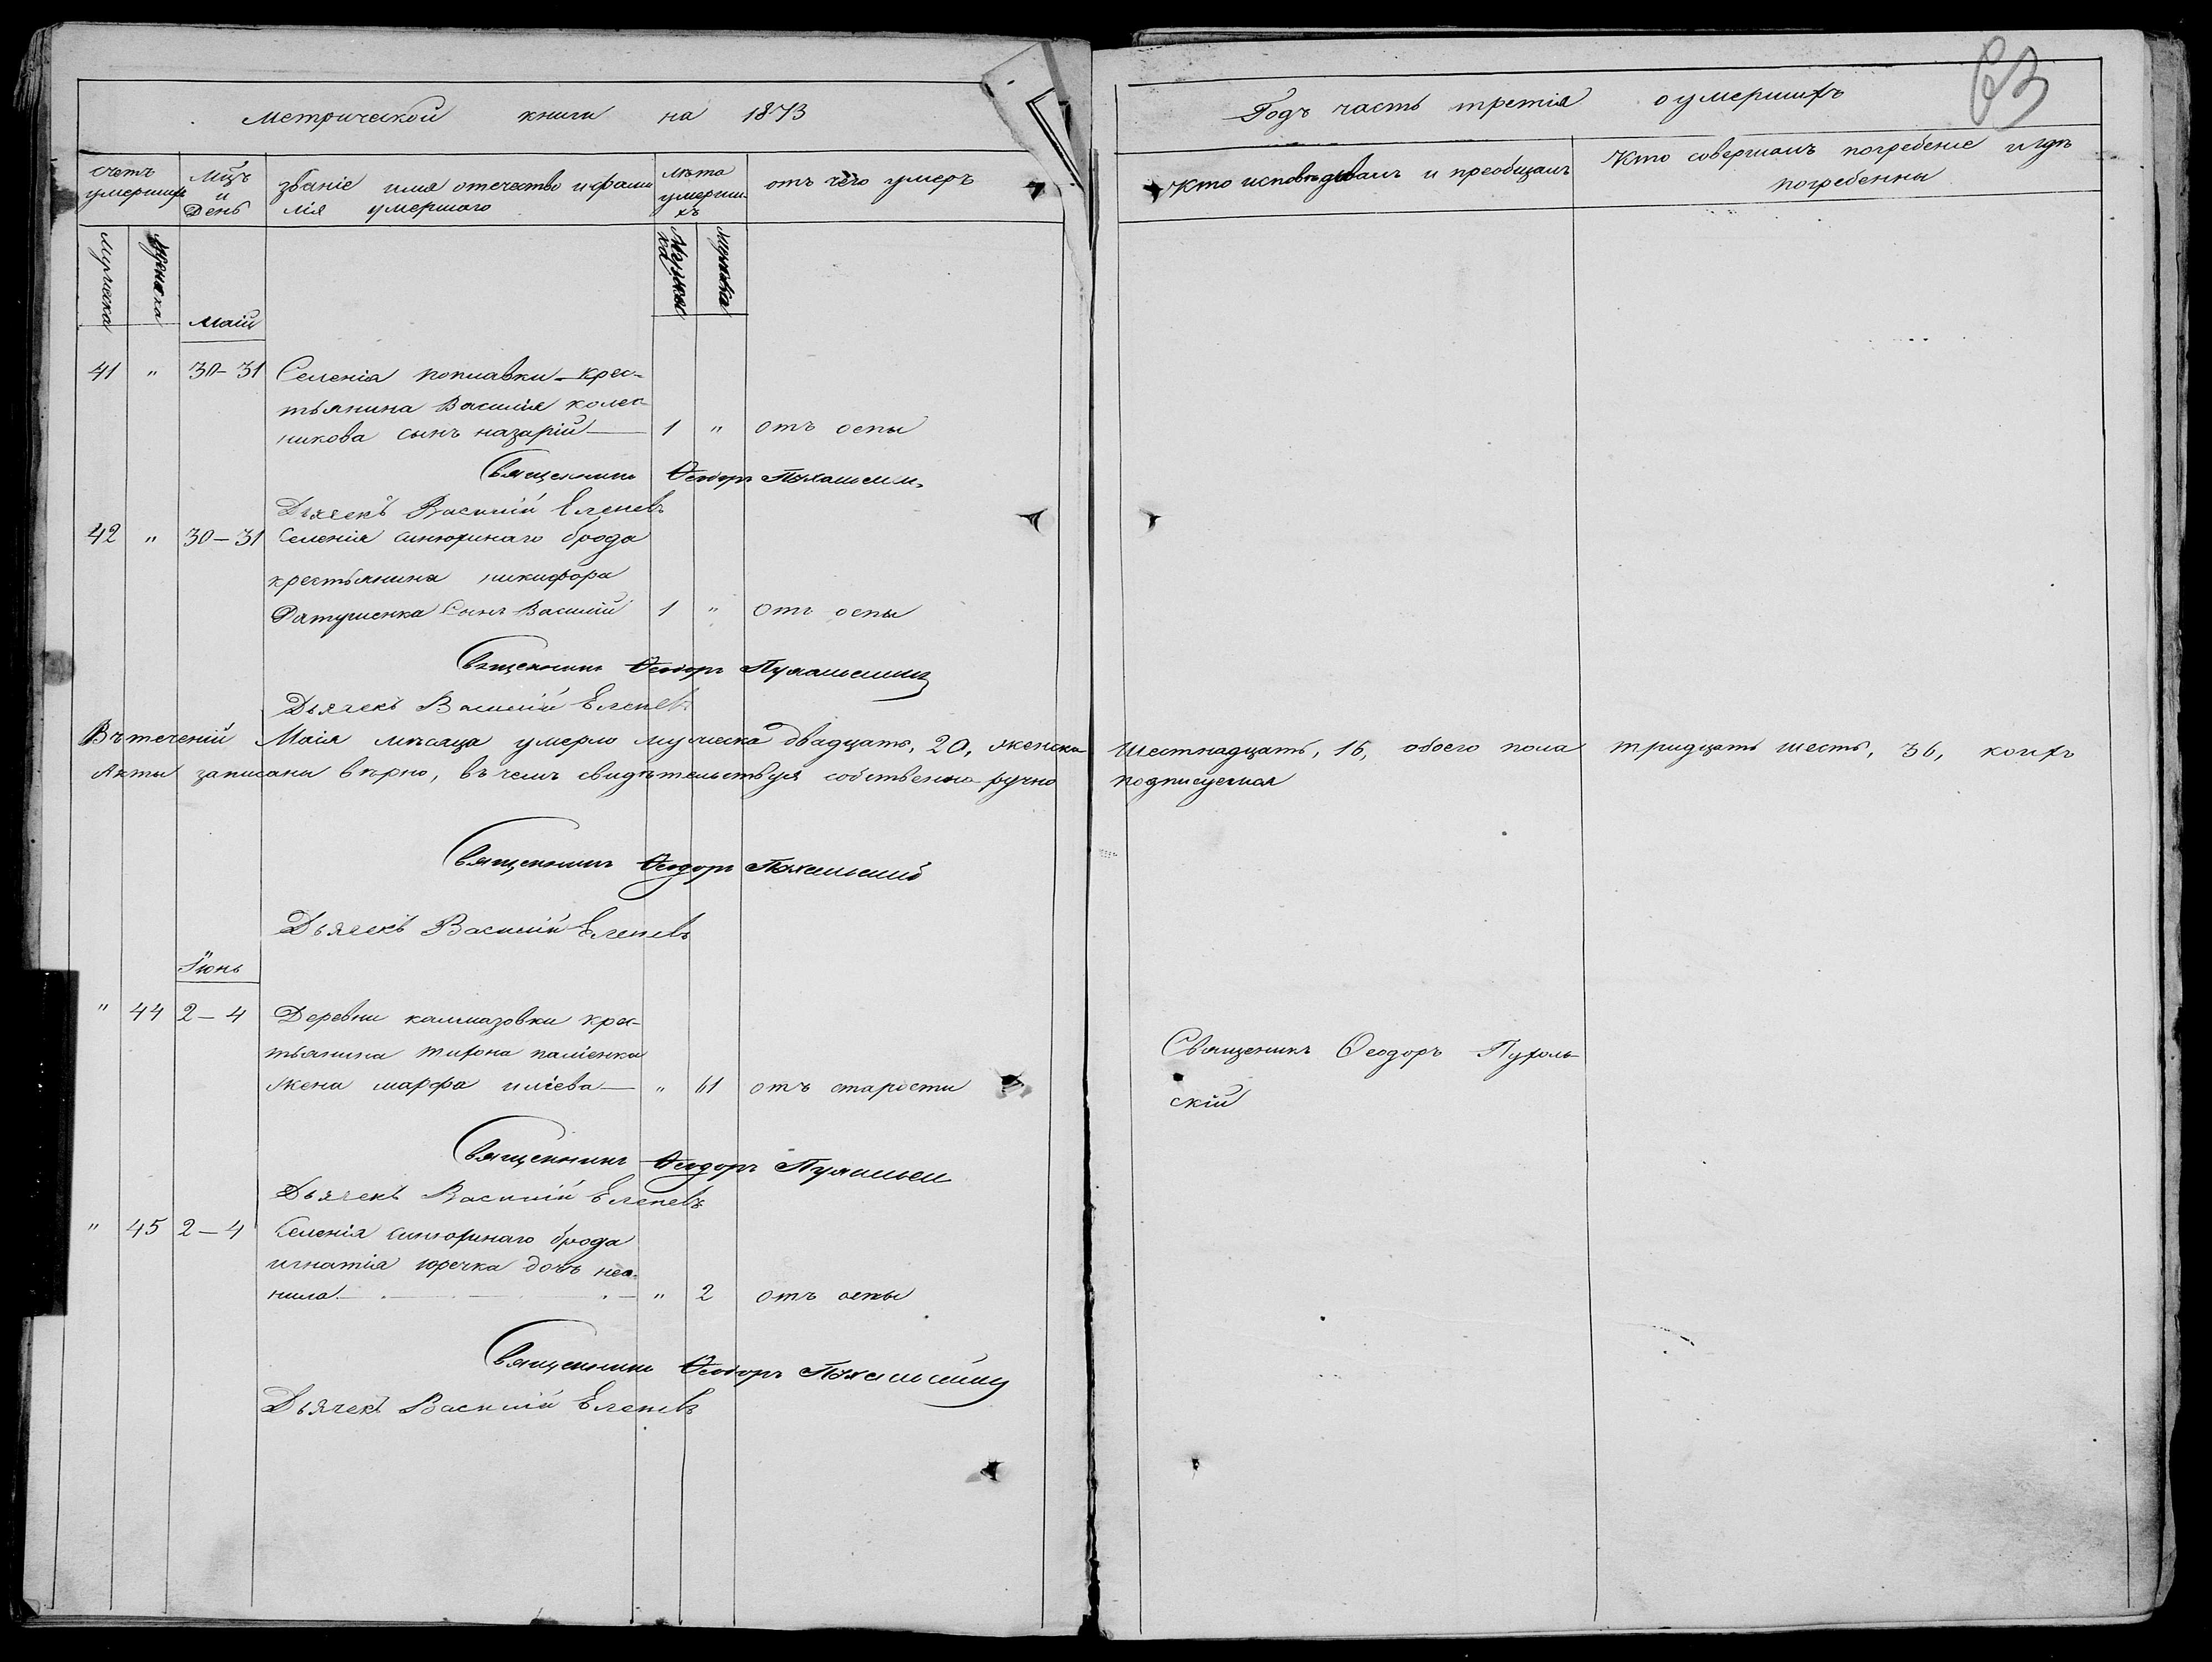 метрической книги на 1873
Годъ часть третія о умершихъ
63
счетъ умершихъ
Мцъ и День
званіе имя отечество и фами
лія умершаго
лѣта умерши-
хъ
отъ чего умеръ
Кто исповѣдывалъ и преобщалъ
Кто совершалъ погребеніе и гдѣ
погребенны
Мужеска
Женска
Мужеска
Женска
маій
41 " 30-31 Селенія поплавки - крес-
тьянина Василія колес-
никова сынъ назарій — 1 " отъ оспы
Священникъ Ѳеодоръ
Дьячекъ Василій Еленевъ
42 " 30-31 Селенія синюхинаго брода
крестьянина никифора
Сынъ Василій 1 " отъ оспы
Священникъ Ѳеодоръ
Дьячекъ Василій Еленевъ
Въ теченіи Маія мѣсяца умерло мужеска двадцать, 20, женска шестнадцать, 16, обоего пола тридцать шесть, 36, коихъ
Акты записани вѣрно, въ чемъ свидѣтельствуя собственно ручно подписуемся
Священникъ Ѳеодоръ
Дьячекъ Василій Еленевъ
Іюнь
" 44 2-4 Деревни калмазовки крес-
тьянина тихона паліенка
жена марфа иліева — " 61 отъ старости
Священикъ Ѳеодоръ Пухаль-
скій
Священникъ Ѳеодоръ
Дьячекъ Василій Еленевъ
" 45 2-4 Селенія синюхинаго брода
игнатія юречка дочь нео-
нила — " 2 отъ оспы
Священникъ Ѳеодоръ
Дьячекъ Василій Еленевъ